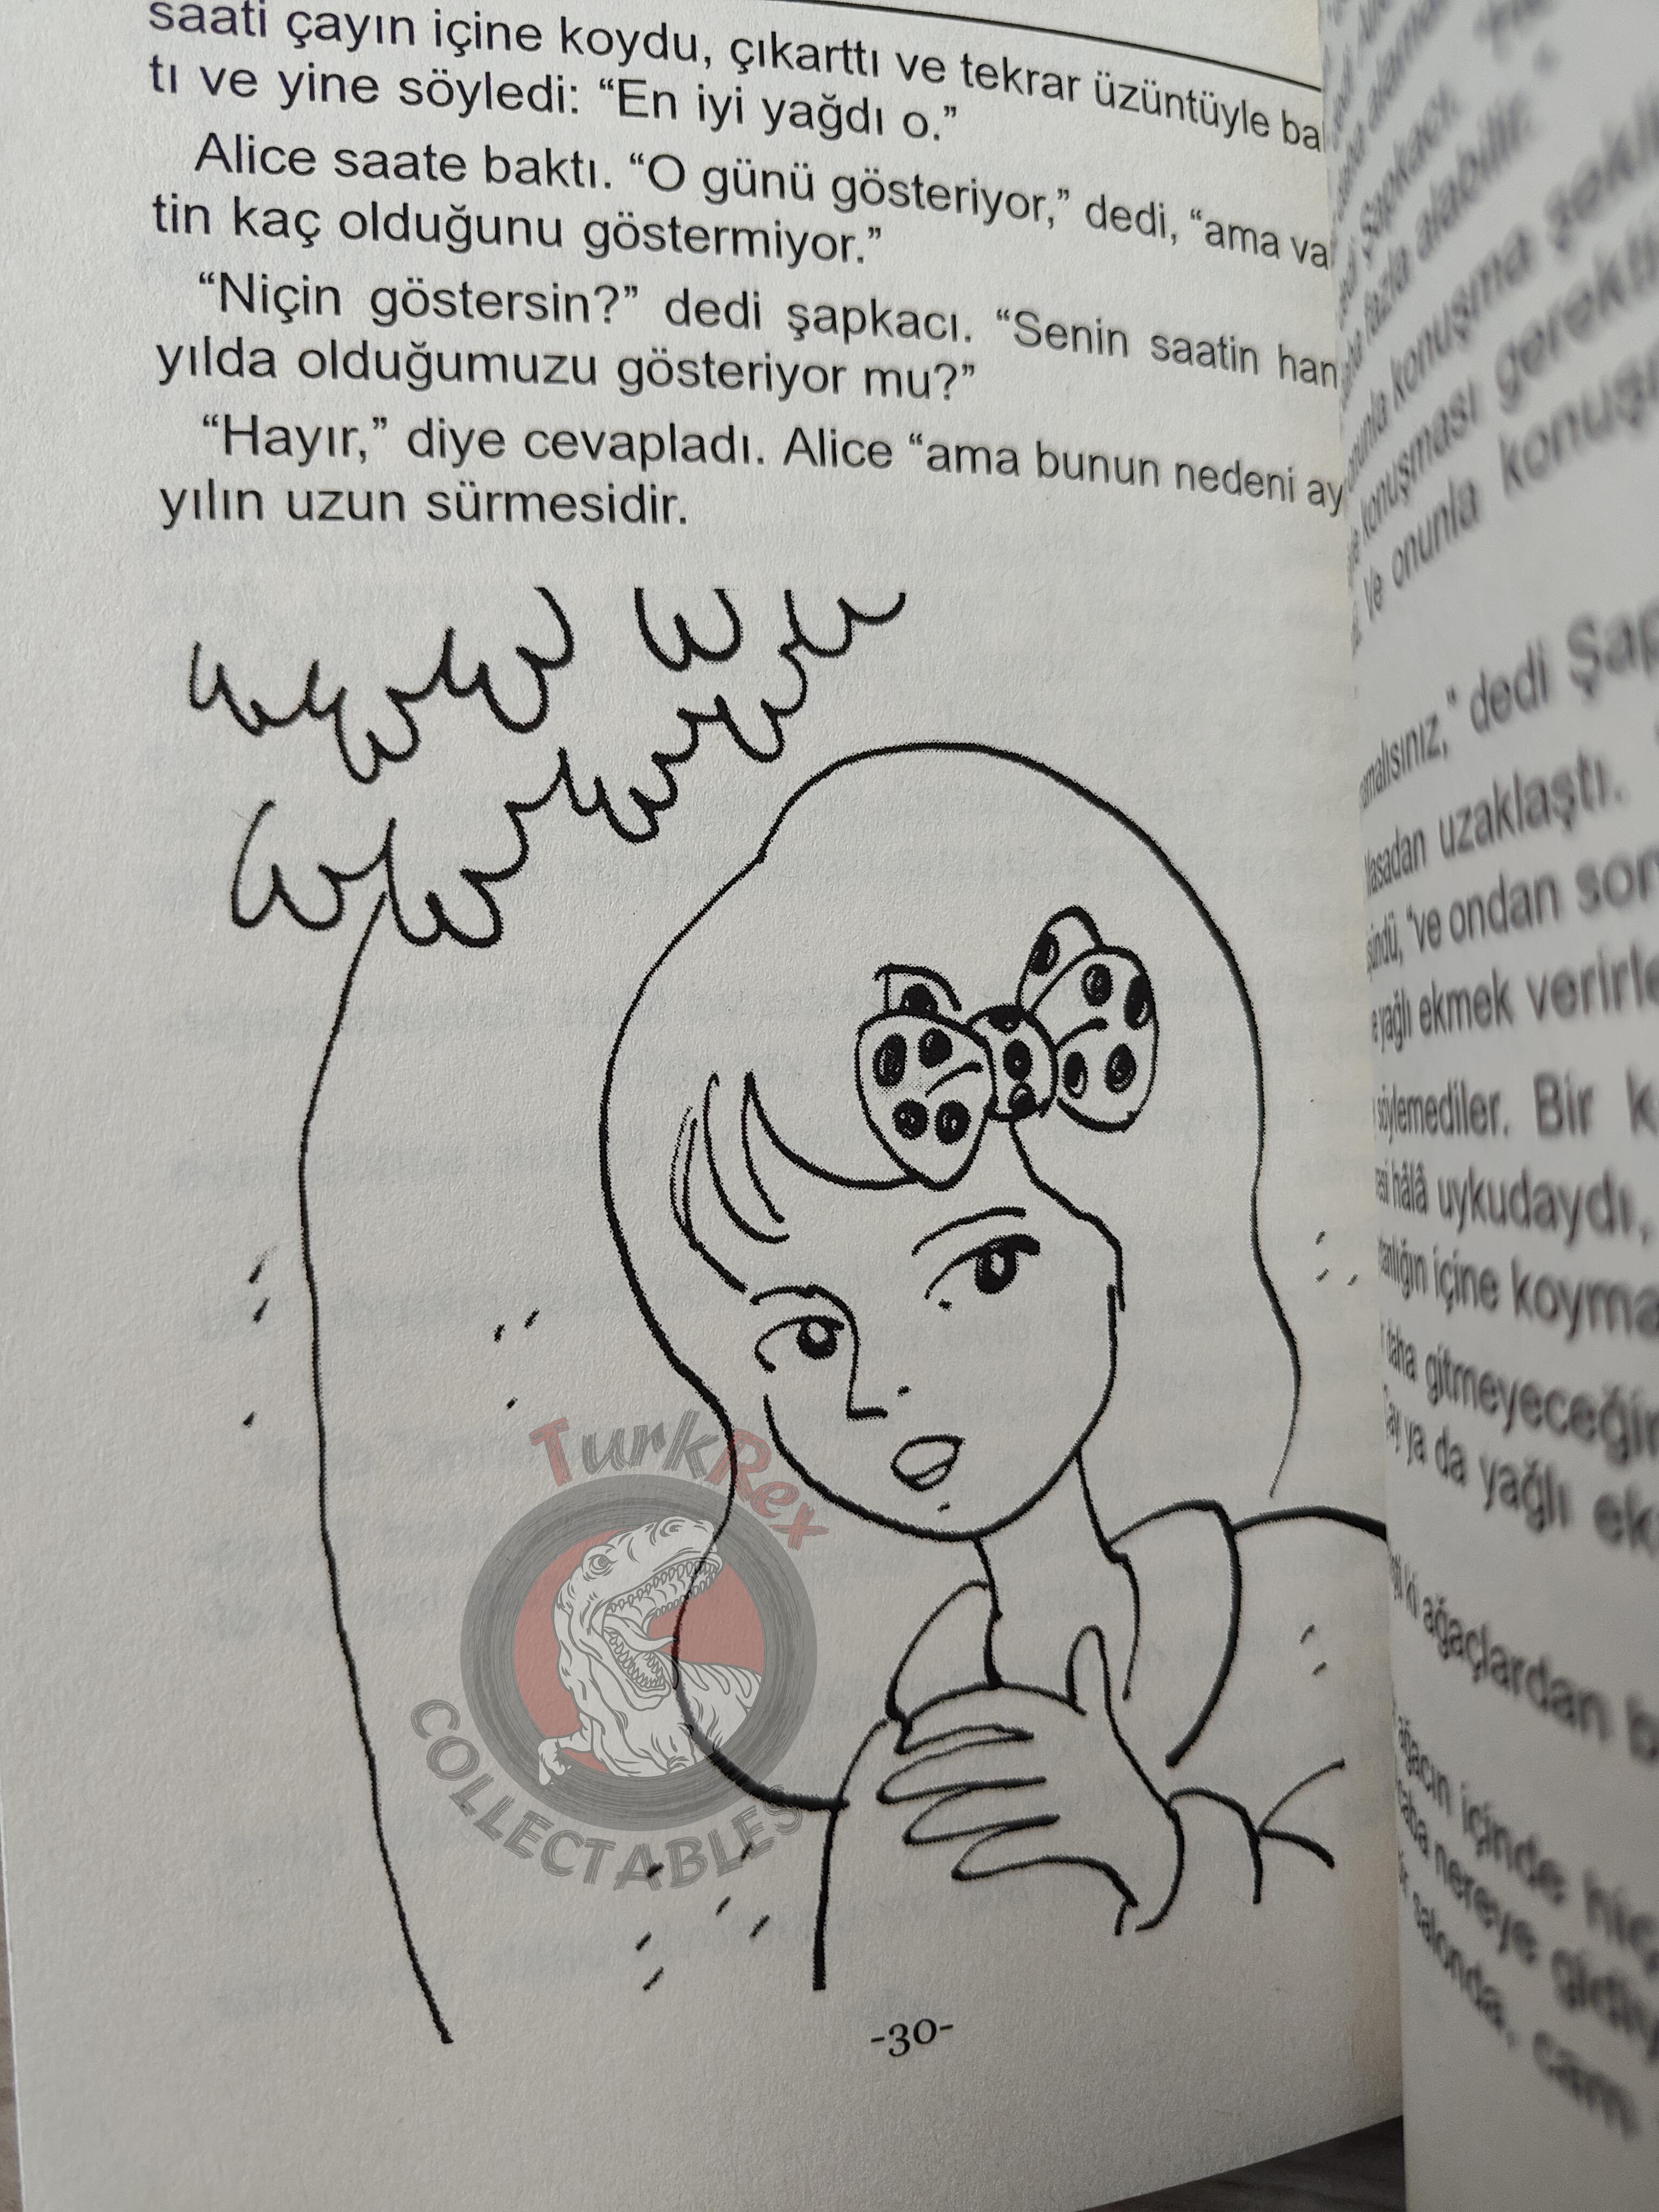 saati çayın içine koydu, çıkarttı ve tekrar üzüntüyle ba
tı ve yine söyledi: “En iyi yağdı o.”
Alice saate baktı. “O günü gösteriyor,” dedi, “ama va
tin kaç olduğunu göstermiyor.”
“Niçin göstersin?” dedi şapkacı. “Senin saatin han
yılda olduğumuzu gösteriyor mu?”
“Hayır,” diye cevapladı. Alice “ama bunun nedeni ay
yılın uzun sürmesidir.
TurkRex
COLLECTABLES
-30-
Şapkacı.
fazla alabilir.”
onunla konuşma şekli
konuşması gerekti
Ve onunla konuş
dedi Şap
Masadan uzaklaştı.
“ve ondan son
yağlı ekmek verirle
söylemediler. Bir k
hâlâ uykudaydı,
içine koyma
daha gitmeyeceğim
ya da yağlı ek
ki ağaçlardan b
ağacın içinde
nereye
salonda, cam